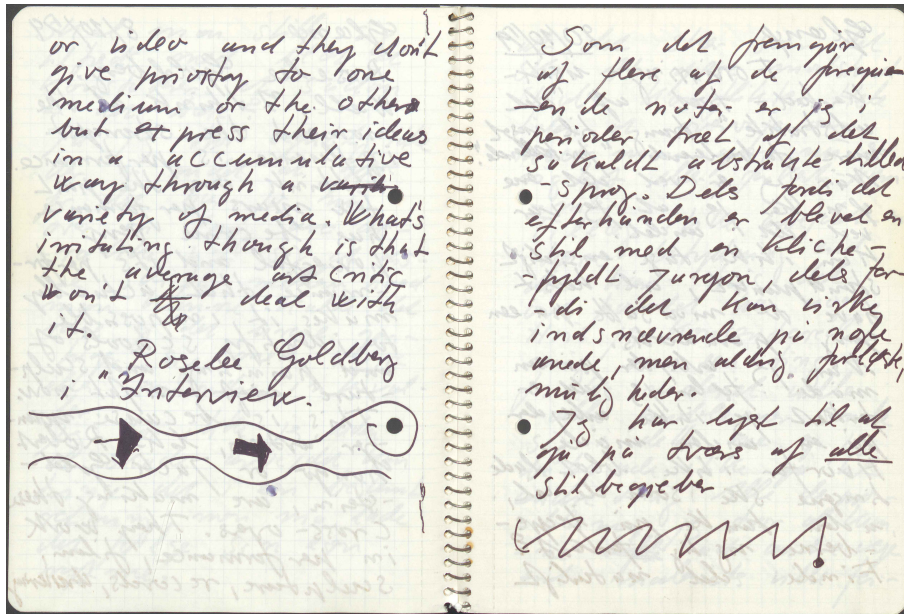 or video and they don't
give priority to one
medium or the other
but express their ideas
in a accumulative
way through a
variety of media. What's
irritating though is that
the average art critic
won't deal with
it.
Roselee Goldberg
i "Interview.
Som det fremgår
af flere af de foregå-
-ende noter er jeg i
perioder træt af det
såkaldt abstrakte billed
-sprog. Dels fordi det
efterhånden er blevet en
stil med en kliche-
-fyldt jargon, dels for
-di det kan virke
indsnævrende på nogle
områder, men aldrig
muligheder.
Jeg har lyst til at
gå på tværs af alle
stilbegreber